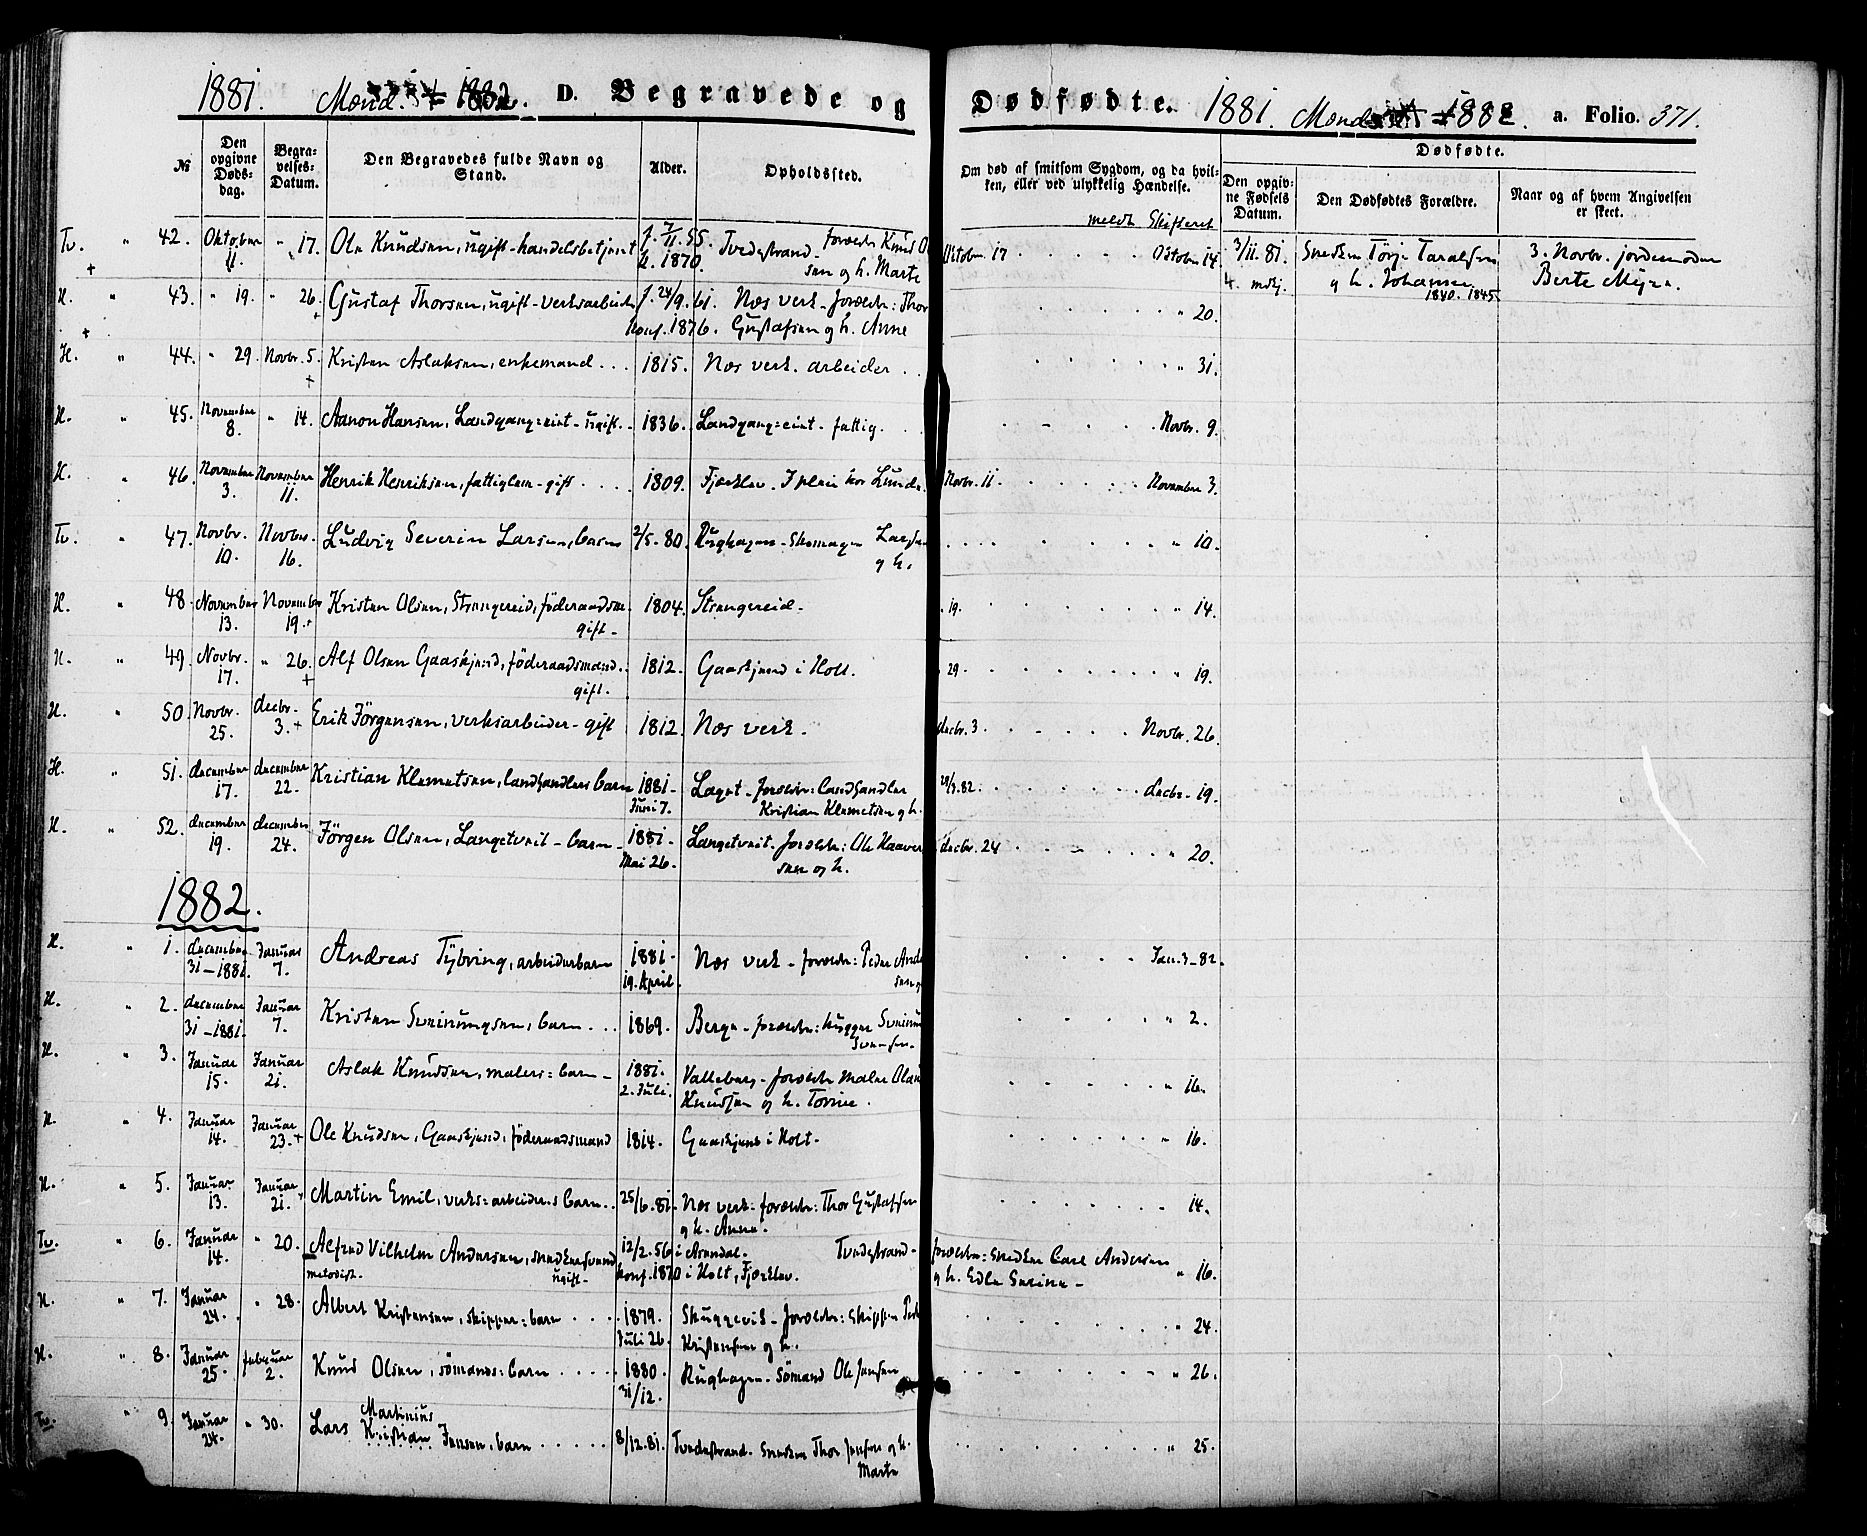 1881. Mænd. 1882. D. Begravede og Dødfødte. 1881. Mænd 1882. a. Folio. 371.
№
Den opgivne Dødsdag.
Begravelses-Datum.
Den Begravedes fulde Navn og Stand.
Alder.
Opholdssted.
Om død af smitsom Sygdom, og da hvilken, eller ved ulykkelig Hændelse.
meldt Skifteret
Dødfødte.
Den opgivne Fødsels Datum.
Den Dødfødtes Forældre.
Naar og af hvem Angivelsen er skeet.
Tv. " 42. Oktober 11. " 17. Ole Knudsen, ugift - handelsbetjent f. 7/11. 55. k. 1870. Tvedestrand. forældre Knud O
sen og h. Marte
Oktober 17 Oktober 14
3/11. 81. Snedker Törje Taralsen 3. Novbr. jordemoder
og h. Johanne 1840. 1845. Berte Mÿra.
H. " 43. " 19. " 26. Gustaf Thorsen, ugift - verksarbeider f. 24/9. 61. Næs verk - forældre: Thor
Konf. 1876. Gustafsen og h. Anne
" 20.
H. " 44. " 29. Novbr. 5. Kristen Aslaksen, enkemand . . . 1815. Næs verk. arbeider . . " 31.
H. " 45. November 8. " 14. Aanon Hansen, Landgang:eiet - ugift. - 1836. Landgang:eiet - fattig. Novbr. 9.
H. " 46. November 3. November 11. Henrik Henriksen, fattiglem - gift . . . . 1809. Fjærklev. Novbr. 11. November 3.
Tv. " 47. Novbr. 10. Novbr. 16. Ludvig Severin Larsen, barn 2/5. 80. Rughagen - Skomager Larsen
og h.
" 10.
H. " 48. November 13. November 19. Kristen Olsen, Strengereid, föderaadsm. 1804. Strengereid. 19. " 14.
gift -
H. " 49. Novbr. 17. " 26. Alf Olsen Gaaskjend, föderaadsmand. 1812. Gaaskjend i Holt. 29. " 19.
gift.
H. " 50. Novbr. 25. decbr. 3. Erik Jörgensen, verksarbeider - gift 1812. Næs verk. decbr. 3 Novbr. 26.
H. " 51. december 17. december 22. Kristian Klemetsen, landhandlers barn 1881 - Juni 7. Laget - forældre: landhandler
Kristian Klemetsen og h.
decbr. 19.
H. " 52. december 19. december 24. Jörgen Olsen, Langetveit - barn - 1881. Mai 26. Langetveit. forældre: Ole Haaver
sen og h.
decbr. 24 " 20.
1882.
H. " 1. december 31 - 1881. Januar 7. Andreas Tÿbring, arbeiderbarn 1881 - 19. April. Næs verk - forældre: Peder And
sen o
Jan. 3 - 82.
H. " 2. december 31 - 1881. Januar 7. Kristen Sveinungsen, barn . . . 1869. Berge - forældre: hugger Sveinun
" 2.
H. " 3. Januar 15. Januar 21. Aslak Knudsen, malers: barn - 1881. 2. Juli. Valleberg - forældre maler Olau
Knudsen og h. Torine.
" 16.
H. " 4. Januar 14. Januar 23. Ole Knudsen, Gaaskjend, föderaadsmand 1814. Gaaskjend i Holt. " 16.
H. " 5. Januar 13. Januar 21. Martin Emil, verks:arbeiders barn . . 25/6. 81. Næs verk: forældre: Thor Gustafsen
og h. Anne.
" 14.
Tv. " 6. Januar 14. " 20. Alfred Vilhelm Andersen, snedkersvend 12/2. 56 i Arendal. Tvedestrand -
metodist. ugift - konf. 1870 i Holt, Fjærklev.
forældre: snedker Carl Andersen
og h. Edle Serine - " 16.
H. " 7. Januar 24. " 28. Albert Kristensen, skipper:barn . . . . 1879. Juli 26. Skuggevik - forældre: Skipper Ped
Kristensen og h.
" 24.
H. " 8. Januar 25. februar 2. Knud Olsen, sömands:barn . . . . . 1880. 31/12. Rughagen - Sömand Ole Jensen " 26.
Tv. " 9. Januar 24. " 30. Lars Martinius
Kristian Jensen, barn . . . . . 8/12. 81. Tvedestrand. Snedker Thor Jensen og h.
Marte
" 25.